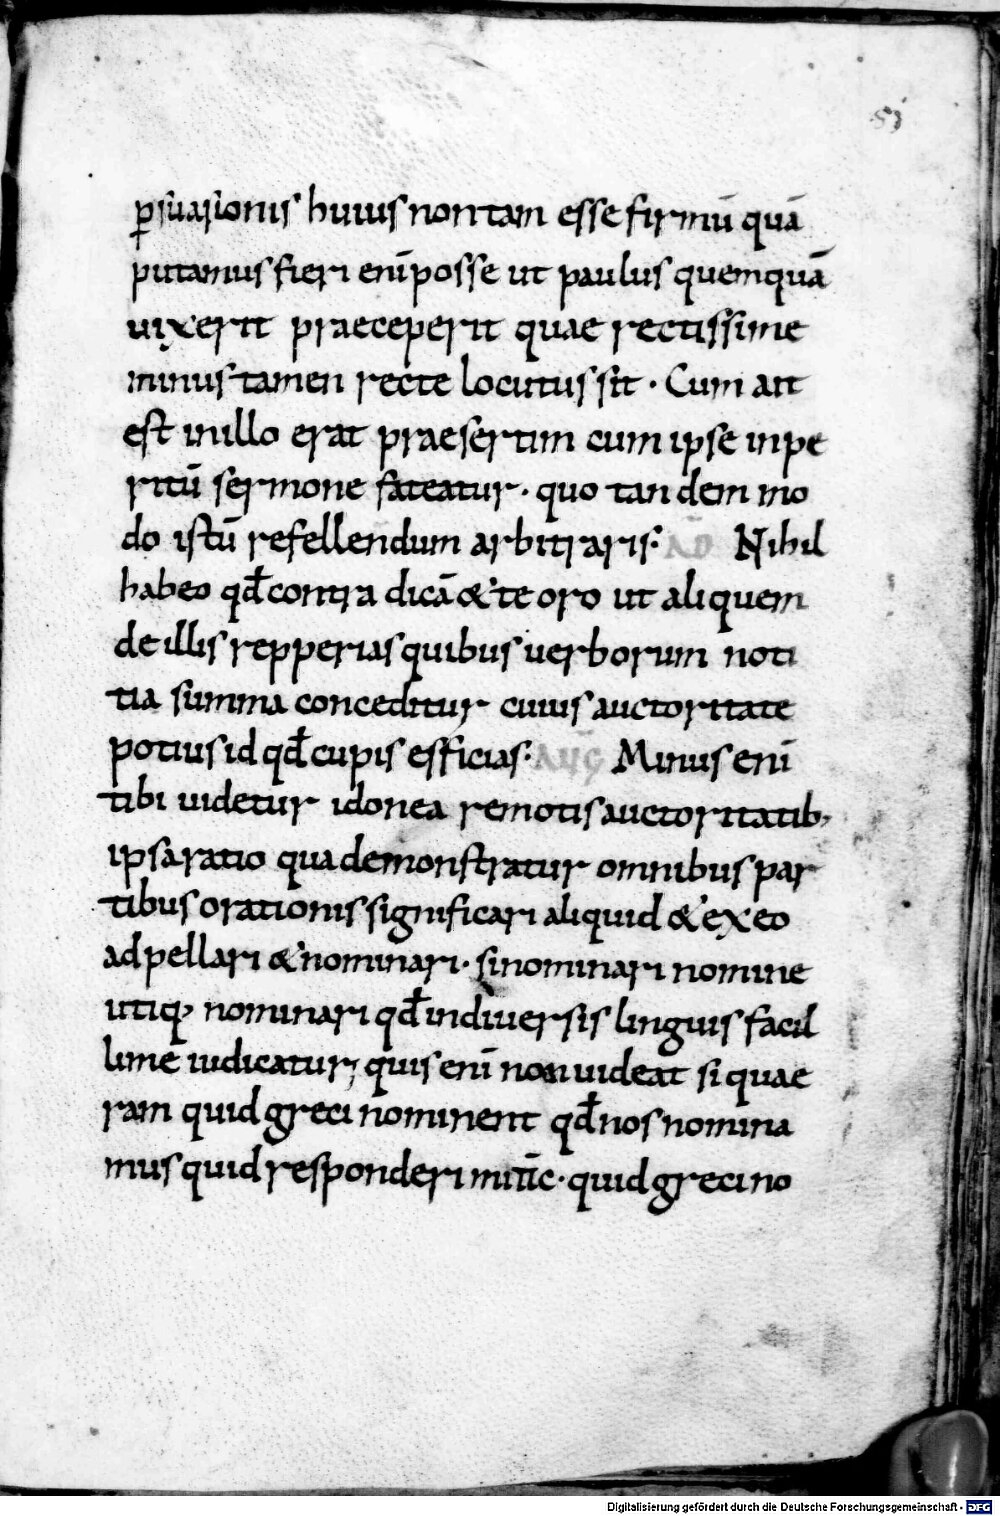 51
p̱suasionis huius non tam esse firmū quā
putamus fieri enī posse ut paulus quemquā
uixerit praeceperit quae rectissime
minus tamen recte locutus sit · Cum ait
est in illo erat praesertim cum ipse inpe
ritū sermone fateatur · quo tandem mo
do istū refellendum arbitraris : AD Nihil
habeo qđ contra dicā & te oro ut aliquem
de illis repperias quibus uerborum noti
tia summa conceditur cuius auctoritate
potius id qđ cupis efficias : AUG Minus enī
tibi uidetur idonea remotis auctoritatib;
ipsa ratio qua demonstratur omnibus par
tibus orationis significari aliquid & ex eo
adpellari & nominari · si nominari nomine
utiq; nominari qđ in diuersis linguis facil
lime iudicatur ; quis enī non uideat si quae
ram quid greci nominent qđ nos nomina
mus quid responderi mi · quid greci no
Digitalisierung gefördert durch die Deutsche Forschungsgemeinschaft - DFG